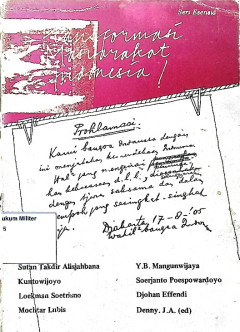 Seri Esensia
Transformasi
Masyarakat
Indonesia!
Proklamasi.
Kami bangsa Indonesia dengan
ini menjatakan kemerdekaan Indonesia.
Hal2 yang mengenai
kekuasaan d.l.l.,
dengan tjara saksama dan dalam
tempoh yang sesingkat-singkat
Djakarta 17-8-'05
Wakil2 bangsa Indon
ukum Militer
5
Sutan Takdir Alisjahbana
Kuntowijoyo
Loekman Soetrisno
Mochtar Lubis
Y.B. Mangunwijaya
Soerjanto Poespowardoyo
Djohan Effendi
Denny. J.A. (ed)